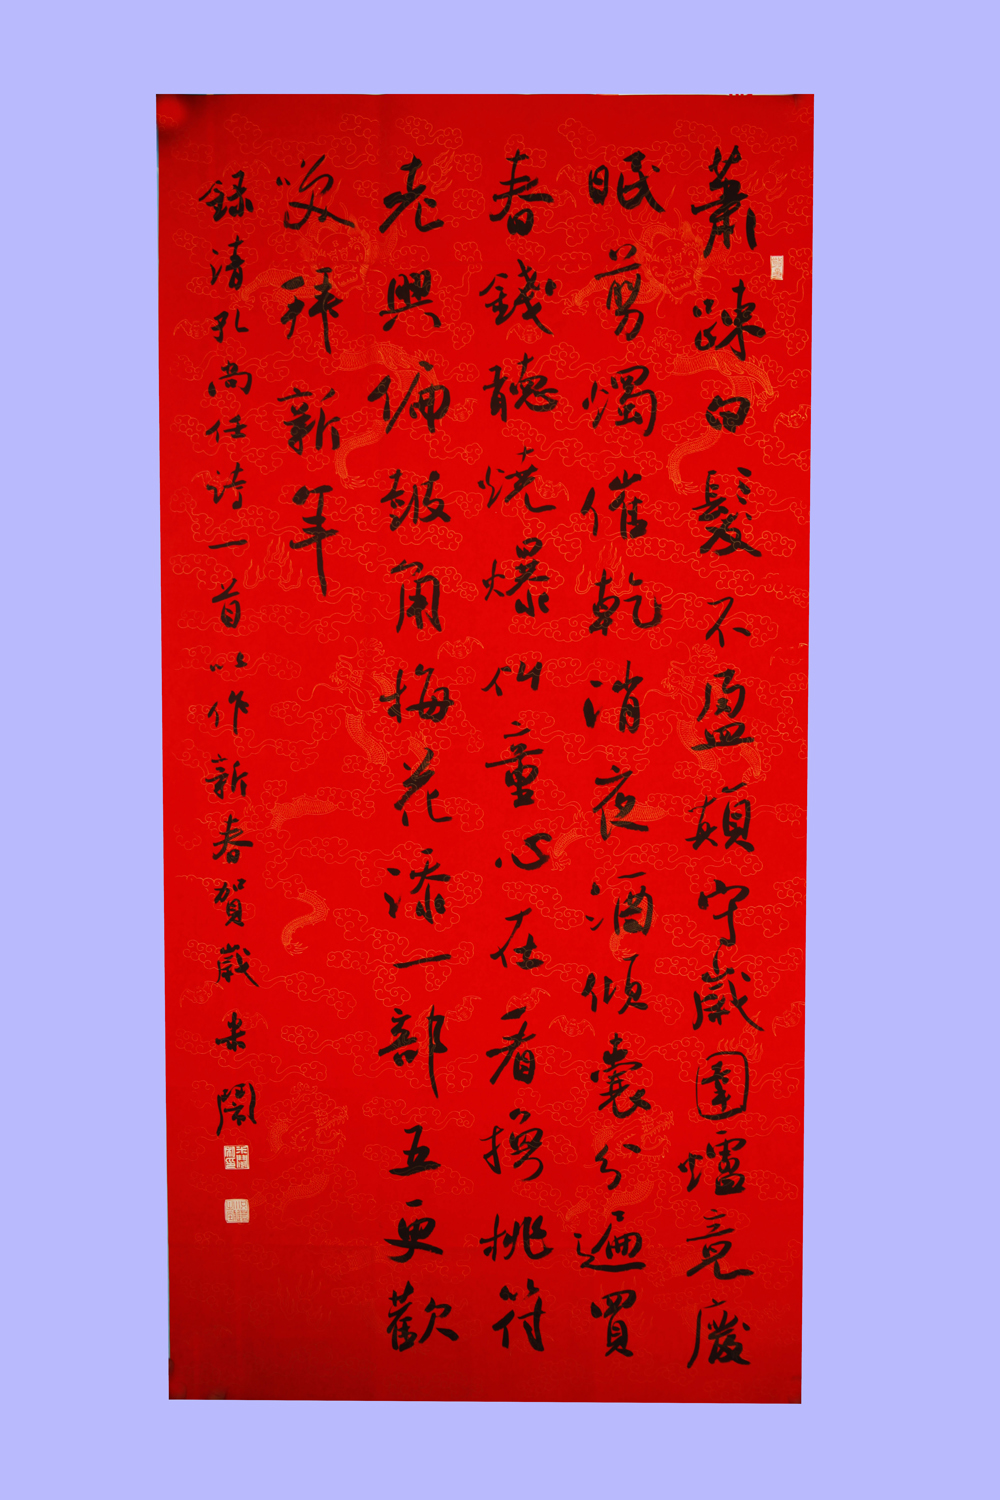 蕭疎白髮不盈顛守歲圍爐竟廢
眠剪燭催乾消夜酒傾囊分遍買
春錢聽燒爆仈童心在看換桃符
老興偏鼓角梅花添一部五更歡
笑拜新年
錄清孔尚任詩一首以作新春賀歲 米鬧